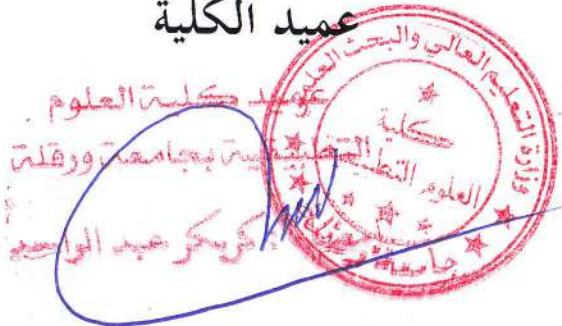 عميد الكلية
عميد كلية العلوم
التطبيقية بجامعة ورقلة
وزارة التعليم العالي والبحث العلمي
كلية
العلوم التطبيقية
جامعة